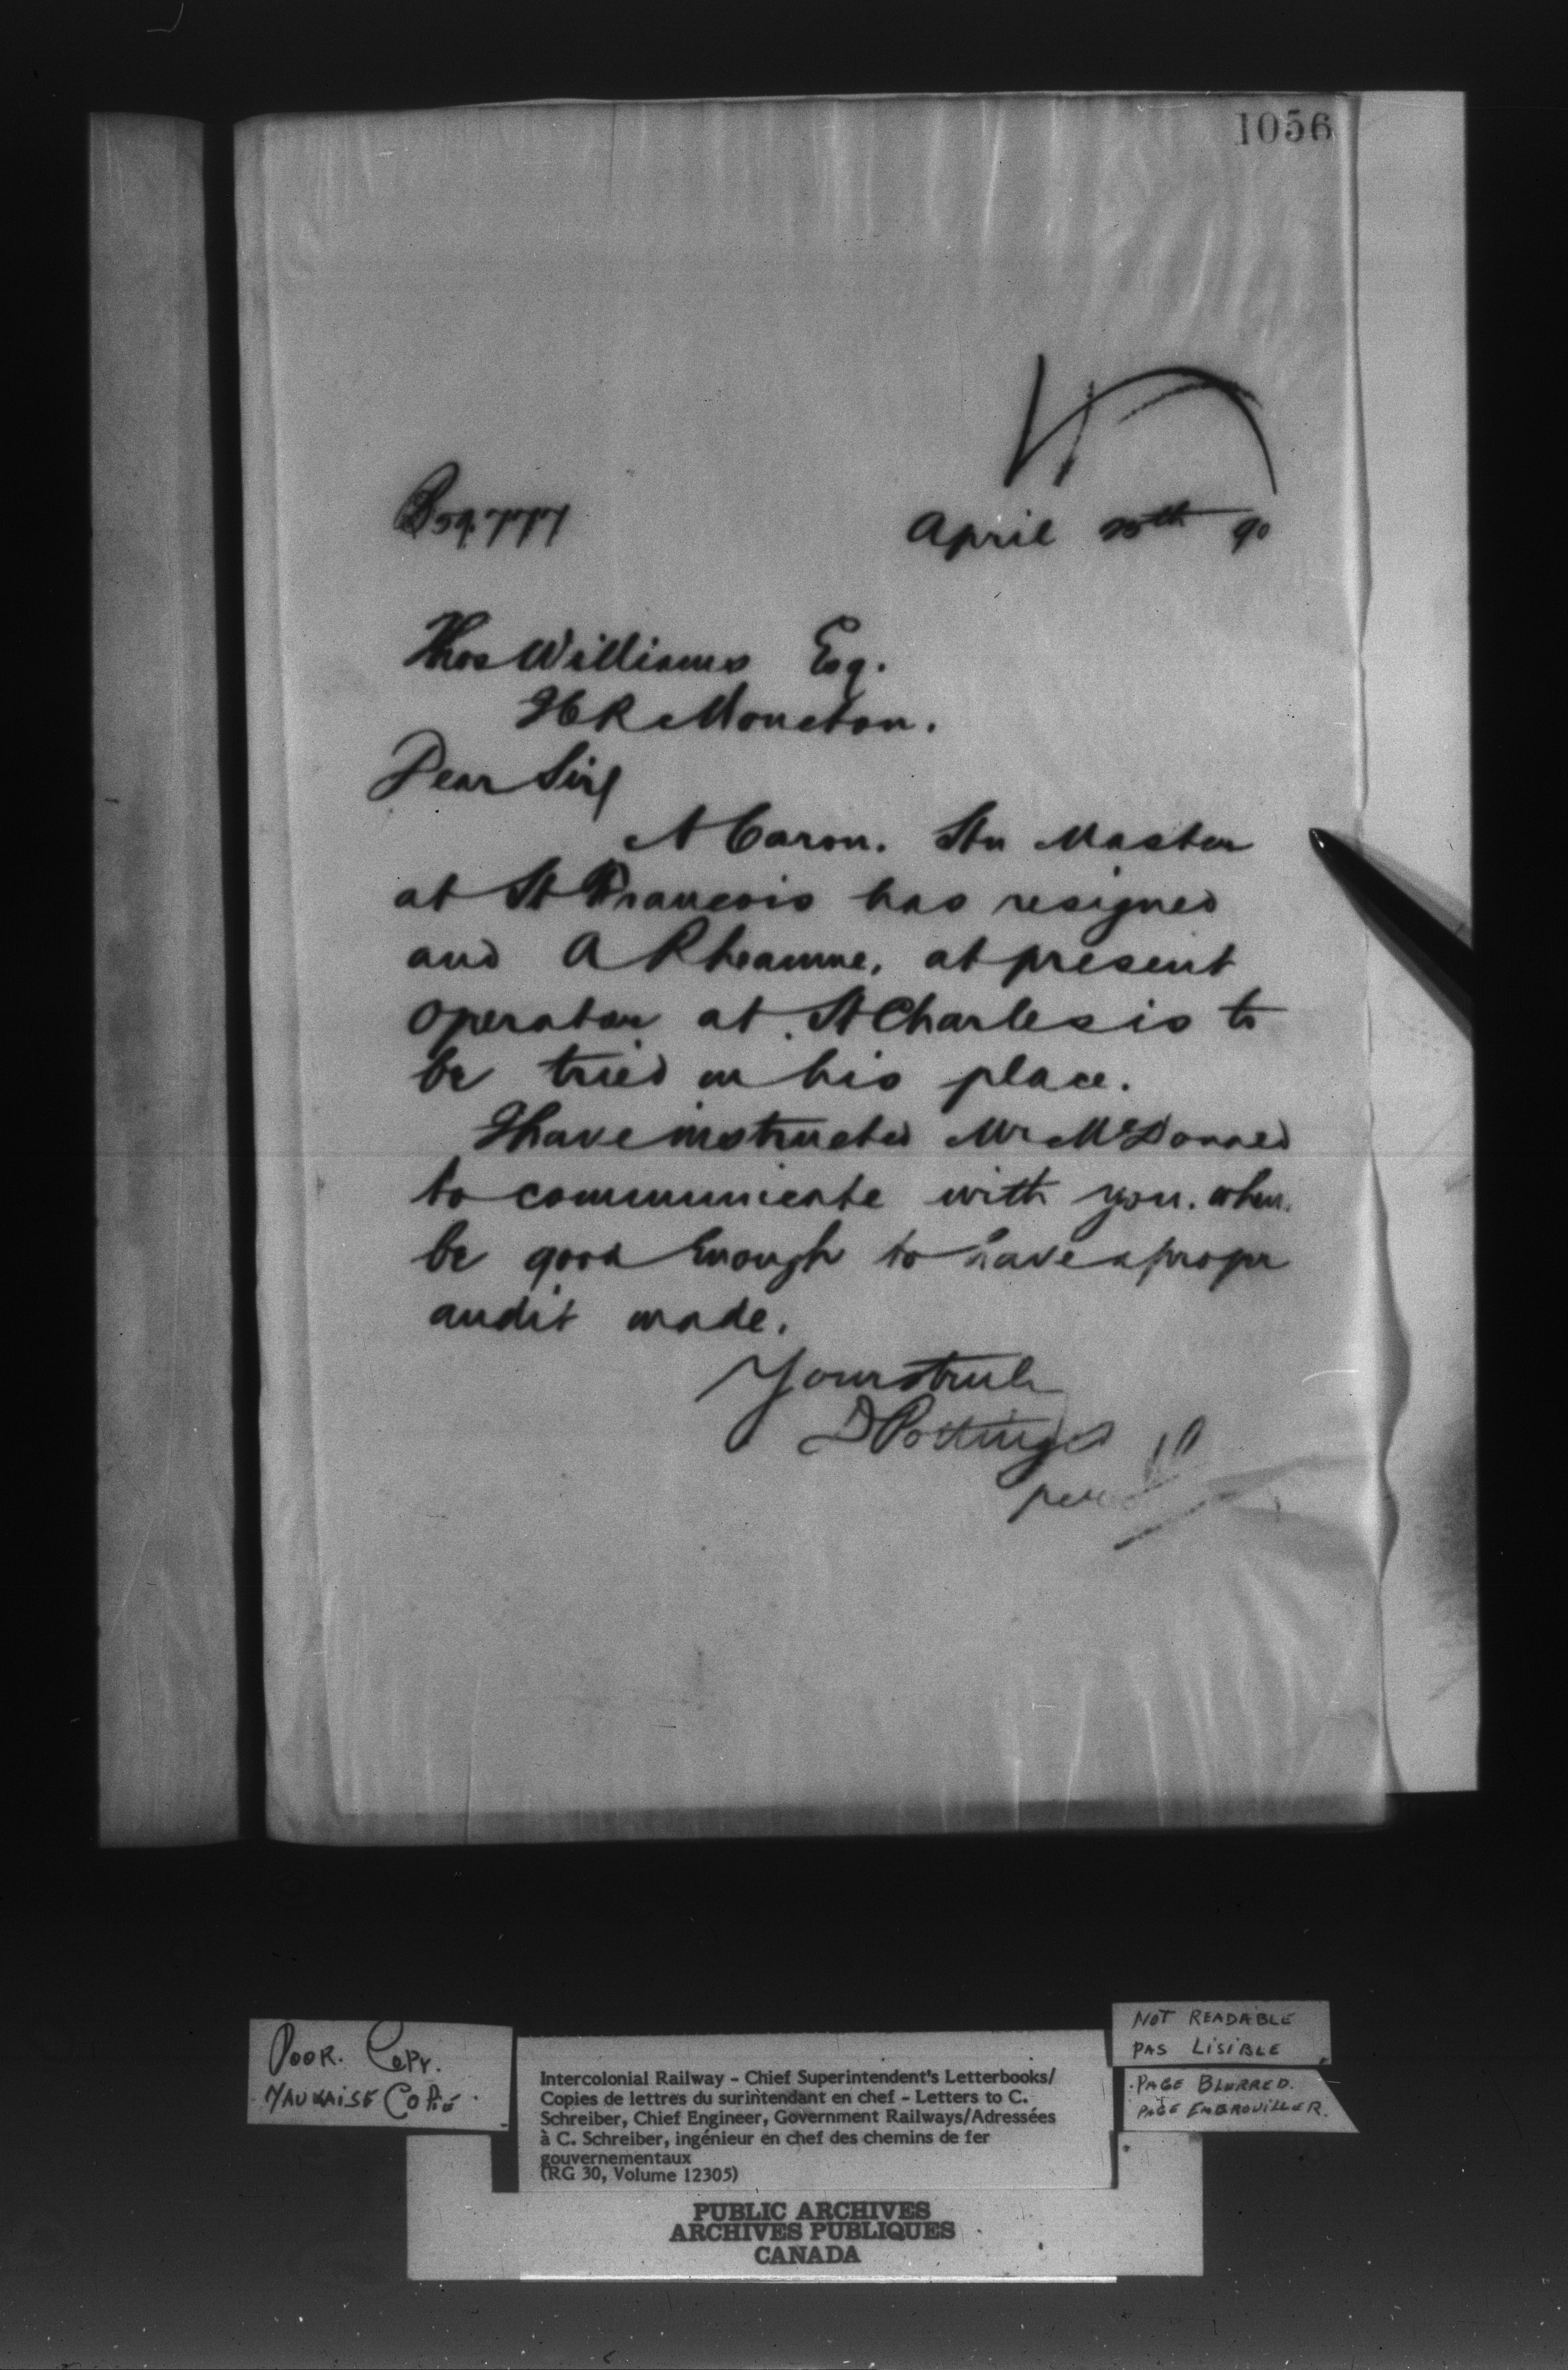 1056
April 25th 90
Thos Williams Esq.
ICR Moncton.
Dear Sir/
A Caron. Stn Master
at St Francois has resigned
and A Rheaume, at present
operator at St Charles is to
be tried in his place.
I have instructed Mr McDonald
to communicate with you. when.
be good Enough to have a proper
audit made.
Yours truly
D Pottinger
per
POOR. COPY.
MAUVAISE COPIE.
NOT READABLE
PAS LISIBLE
PAGE BLURRED.
PAGE EMBROUILLER.
Intercolonial Railway - Chief Superintendent's Letterbooks/
Copies de lettres du surintendant en chef - Letters to C.
Schreiber, Chief Engineer, Government Railways/Adressées
à C. Schreiber, ingénieur en chef des chemins de fer
gouvernementaux
(RG 30, Volume 12305)
PUBLIC ARCHIVES
ARCHIVES PUBLIQUES
CANADA